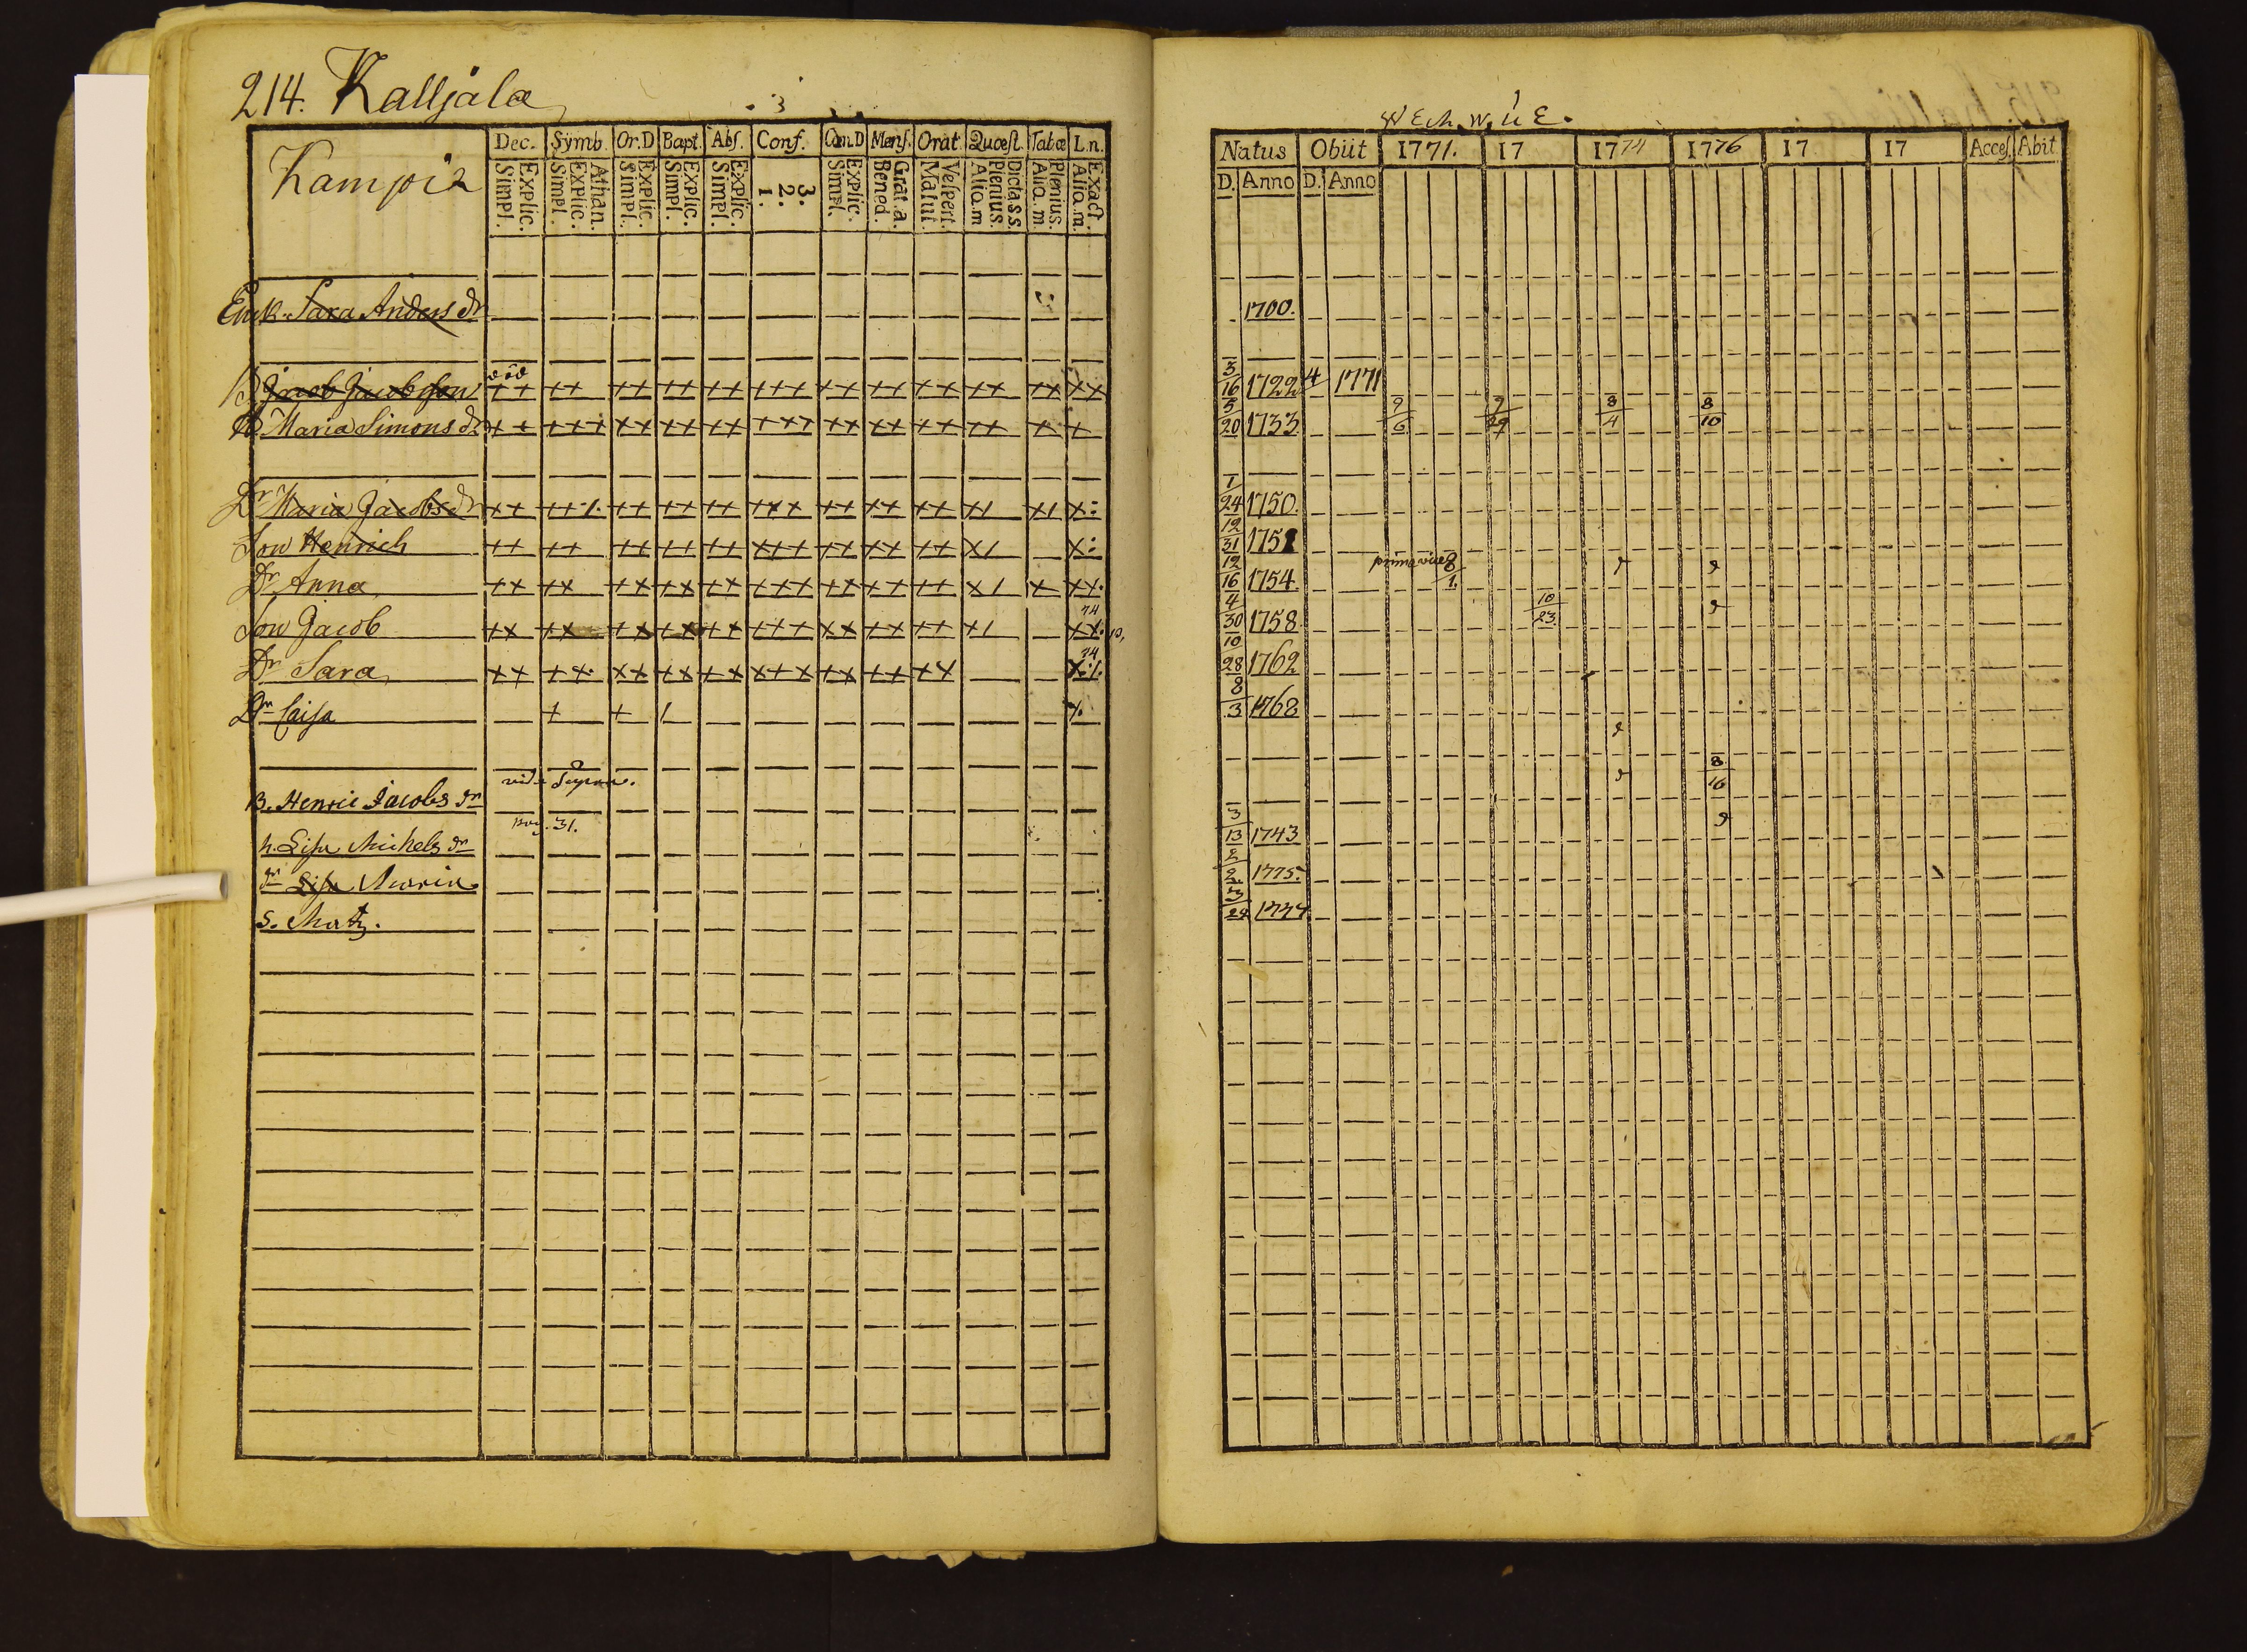 214. Kalljala
3
Kampia
Dec. Symb. Or.D Bapt. Abs. Conf. Cœn.D Mens. Orat. Quœst. Tabœ L.n.
Simpl. Explic. Simpl. Explic. Athan. Simpl. Explic. Simpl. Explic. Simpl. Explic. 1. 2. 3. Simpl. Explic. Bened. Grat.a. Matut. Vespert. Aliq.m Plenius. Dicta s.s. Aliq.m. Plenius. Aliq.m. Exact.
Enck. Sara Anders dr
död
B Jacob Jacobsson
Maria Simons dr
Dr Maria Jacobs dr
Son Henrich
Dr Anna
74
Son Jacob
74
Dr Sara
Dr Caisa
vide Supra.
B. Henric Jacobs sn
pag. 31.
h. Lisa Michels dr
dr Lisa Maria
S. Matz.
Natus Obiit 1771. 17 1774 1776 17 17 Acces. Abit
D. Anno D. Anno
1700.
3/16 1722 4 1771
5/20 1733 9/6 8/4 8/10
1/24 1750.
12/31 1751
12/16 1754. prima vice 8/1.
4/30 1758. 10/23
10/28 1762
8/3 1768
8/16
3/13 1743
2/2. 1775.
3/28 1777